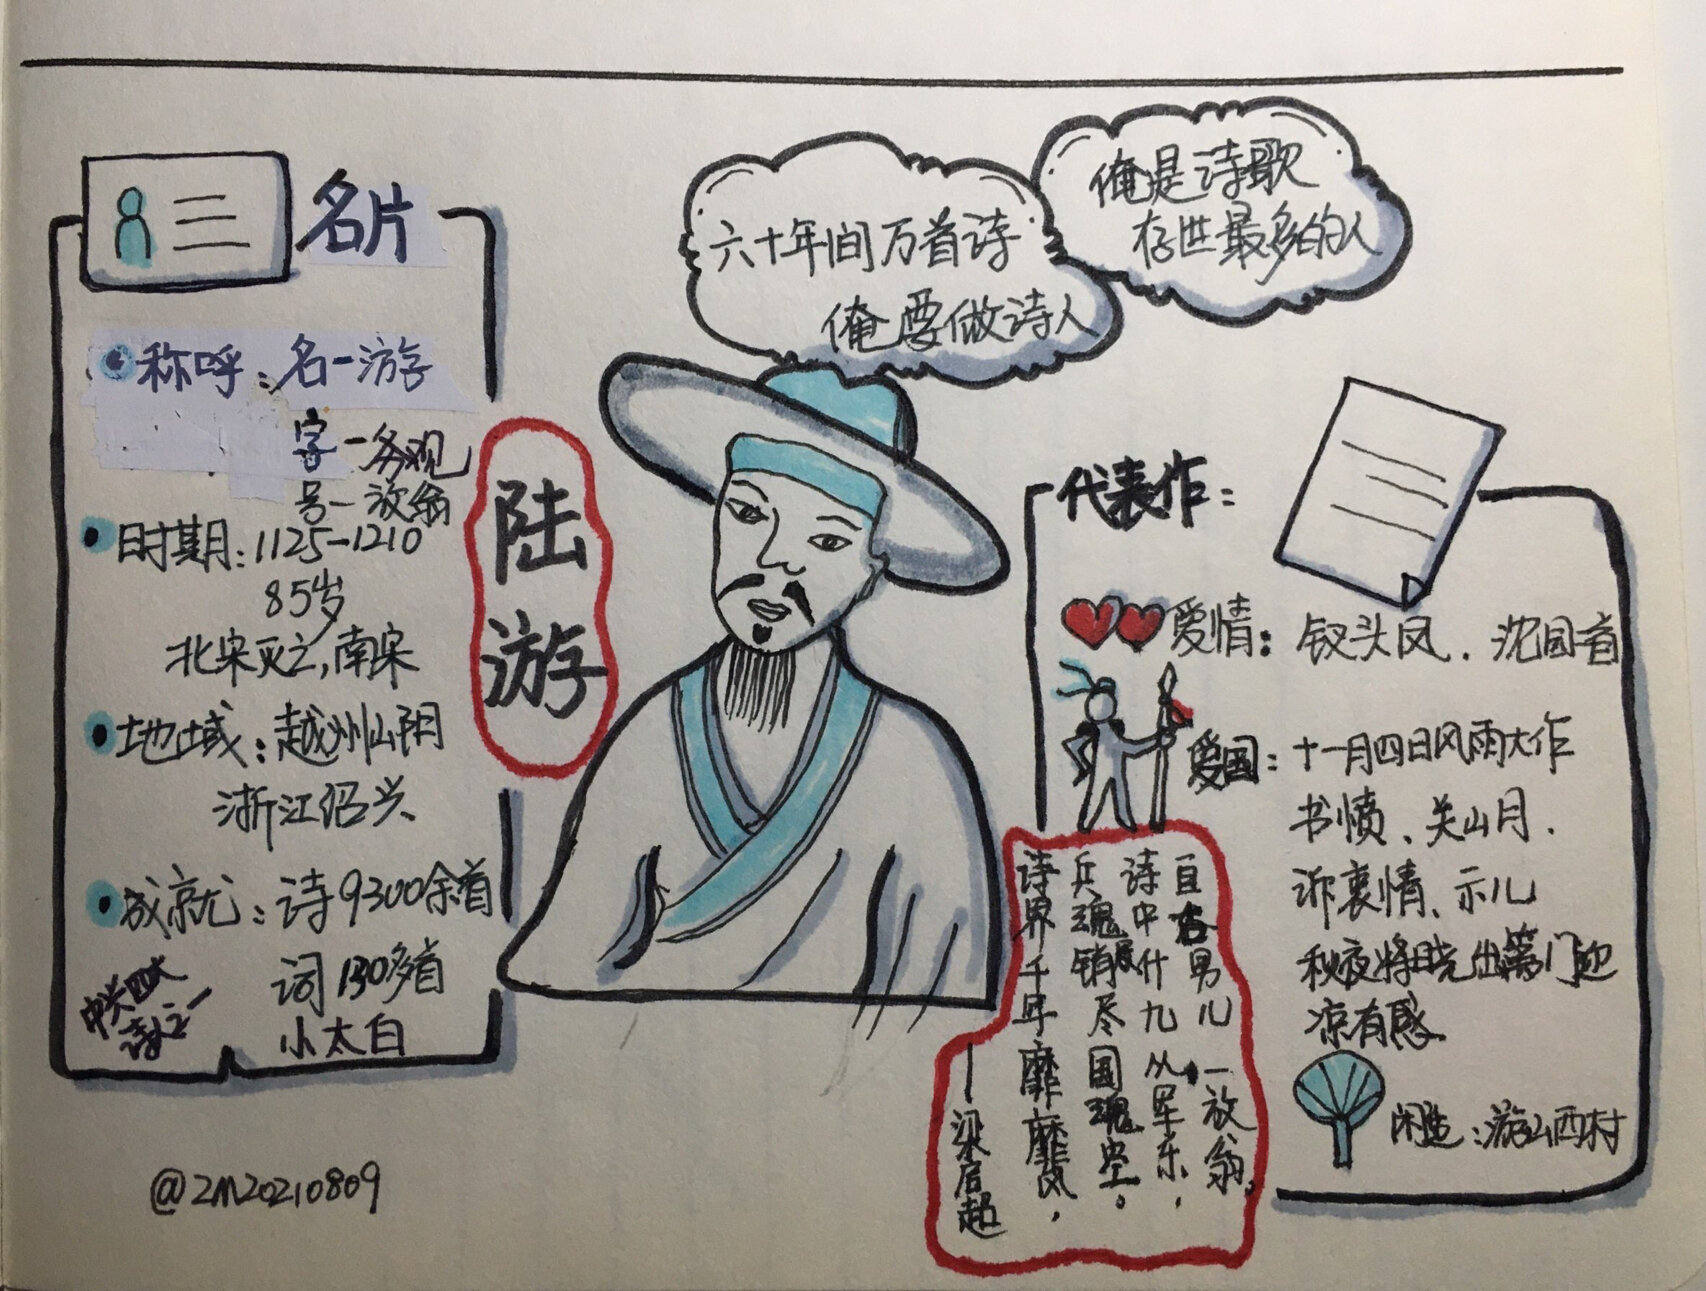 名片
称呼：名－游
字－务观
号－放翁
时期：1125-1210
85岁
北宋灭亡，南宋
地域：越州山阴
浙江绍兴
成就：诗9300余首
词130多首
小太白
中兴四大
诗人之一
@ZM20210809
陆游
六十年间万首诗
俺要做诗人
俺是诗歌
存世最多的人
代表作：
爱情：钗头凤．沈园二首
爱国：十一月四日风雨大作
书愤、关山月．
诉衷情、示儿
秋夜将晓出篱门迎
凉有感．
闲适：游山西村
诗界千年靡靡风，
兵魂销尽国魂空。
诗中什九从军乐，
亘古男儿一放翁。
—梁启超